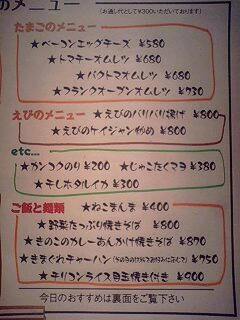 のメニュー
(お通し代として¥300いただいております)
たまごのメニュー
★ベーコンエッグチーズ ¥580
★トマチーオムレツ ¥680
★パクトマオムレツ ¥680
★フランクオープンオムレツ ¥730
えびのメニュー ★えびのパリパリ揚げ ¥800
★えびのケイジャン炒め ¥800
etc...
★カンコクのり ¥200 ★じゃこたくマヨ ¥380
★干しホタルイカ ¥300
ご飯と麺類 ★ねこまんま ¥400
★野菜たっぷり焼きそば ¥800
★きのこのカレーあんかけ焼きそば ¥870
★きまぐれチャーハン ¥750
★チリコンライス目玉焼き付き ¥900
今日のおすすめは裏面をご覧下さい